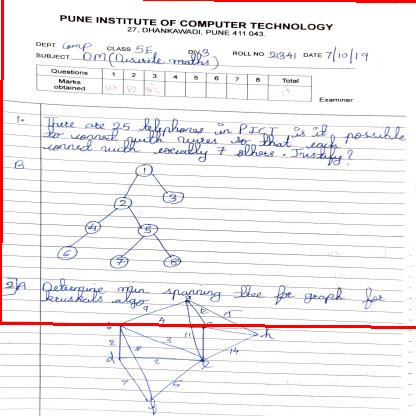 PUNE INSTITUTE OF COMPUTER TECHNOLOGY
27, DHANKAWADI, PUNE 411 043.
DEPT. Comp CLASS SE DIV. 3 ROLL NO. 21341 DATE 7/10/19
SUBJECT DM (Discrete maths)
Questions 1 2 3 4 5 6 7 8 Total
Marks obtained
Examiner
1. There are 25 telephones in PICT is it possible
to connect with wires so that each
connect with exactly 7 others. Justify?
B
1
2 3
4 5
6 7 8
2) A Determine min spanning tree for graph for
kruskals algo
9 15
4
3 11 h
2
d 2 14
7 6
f